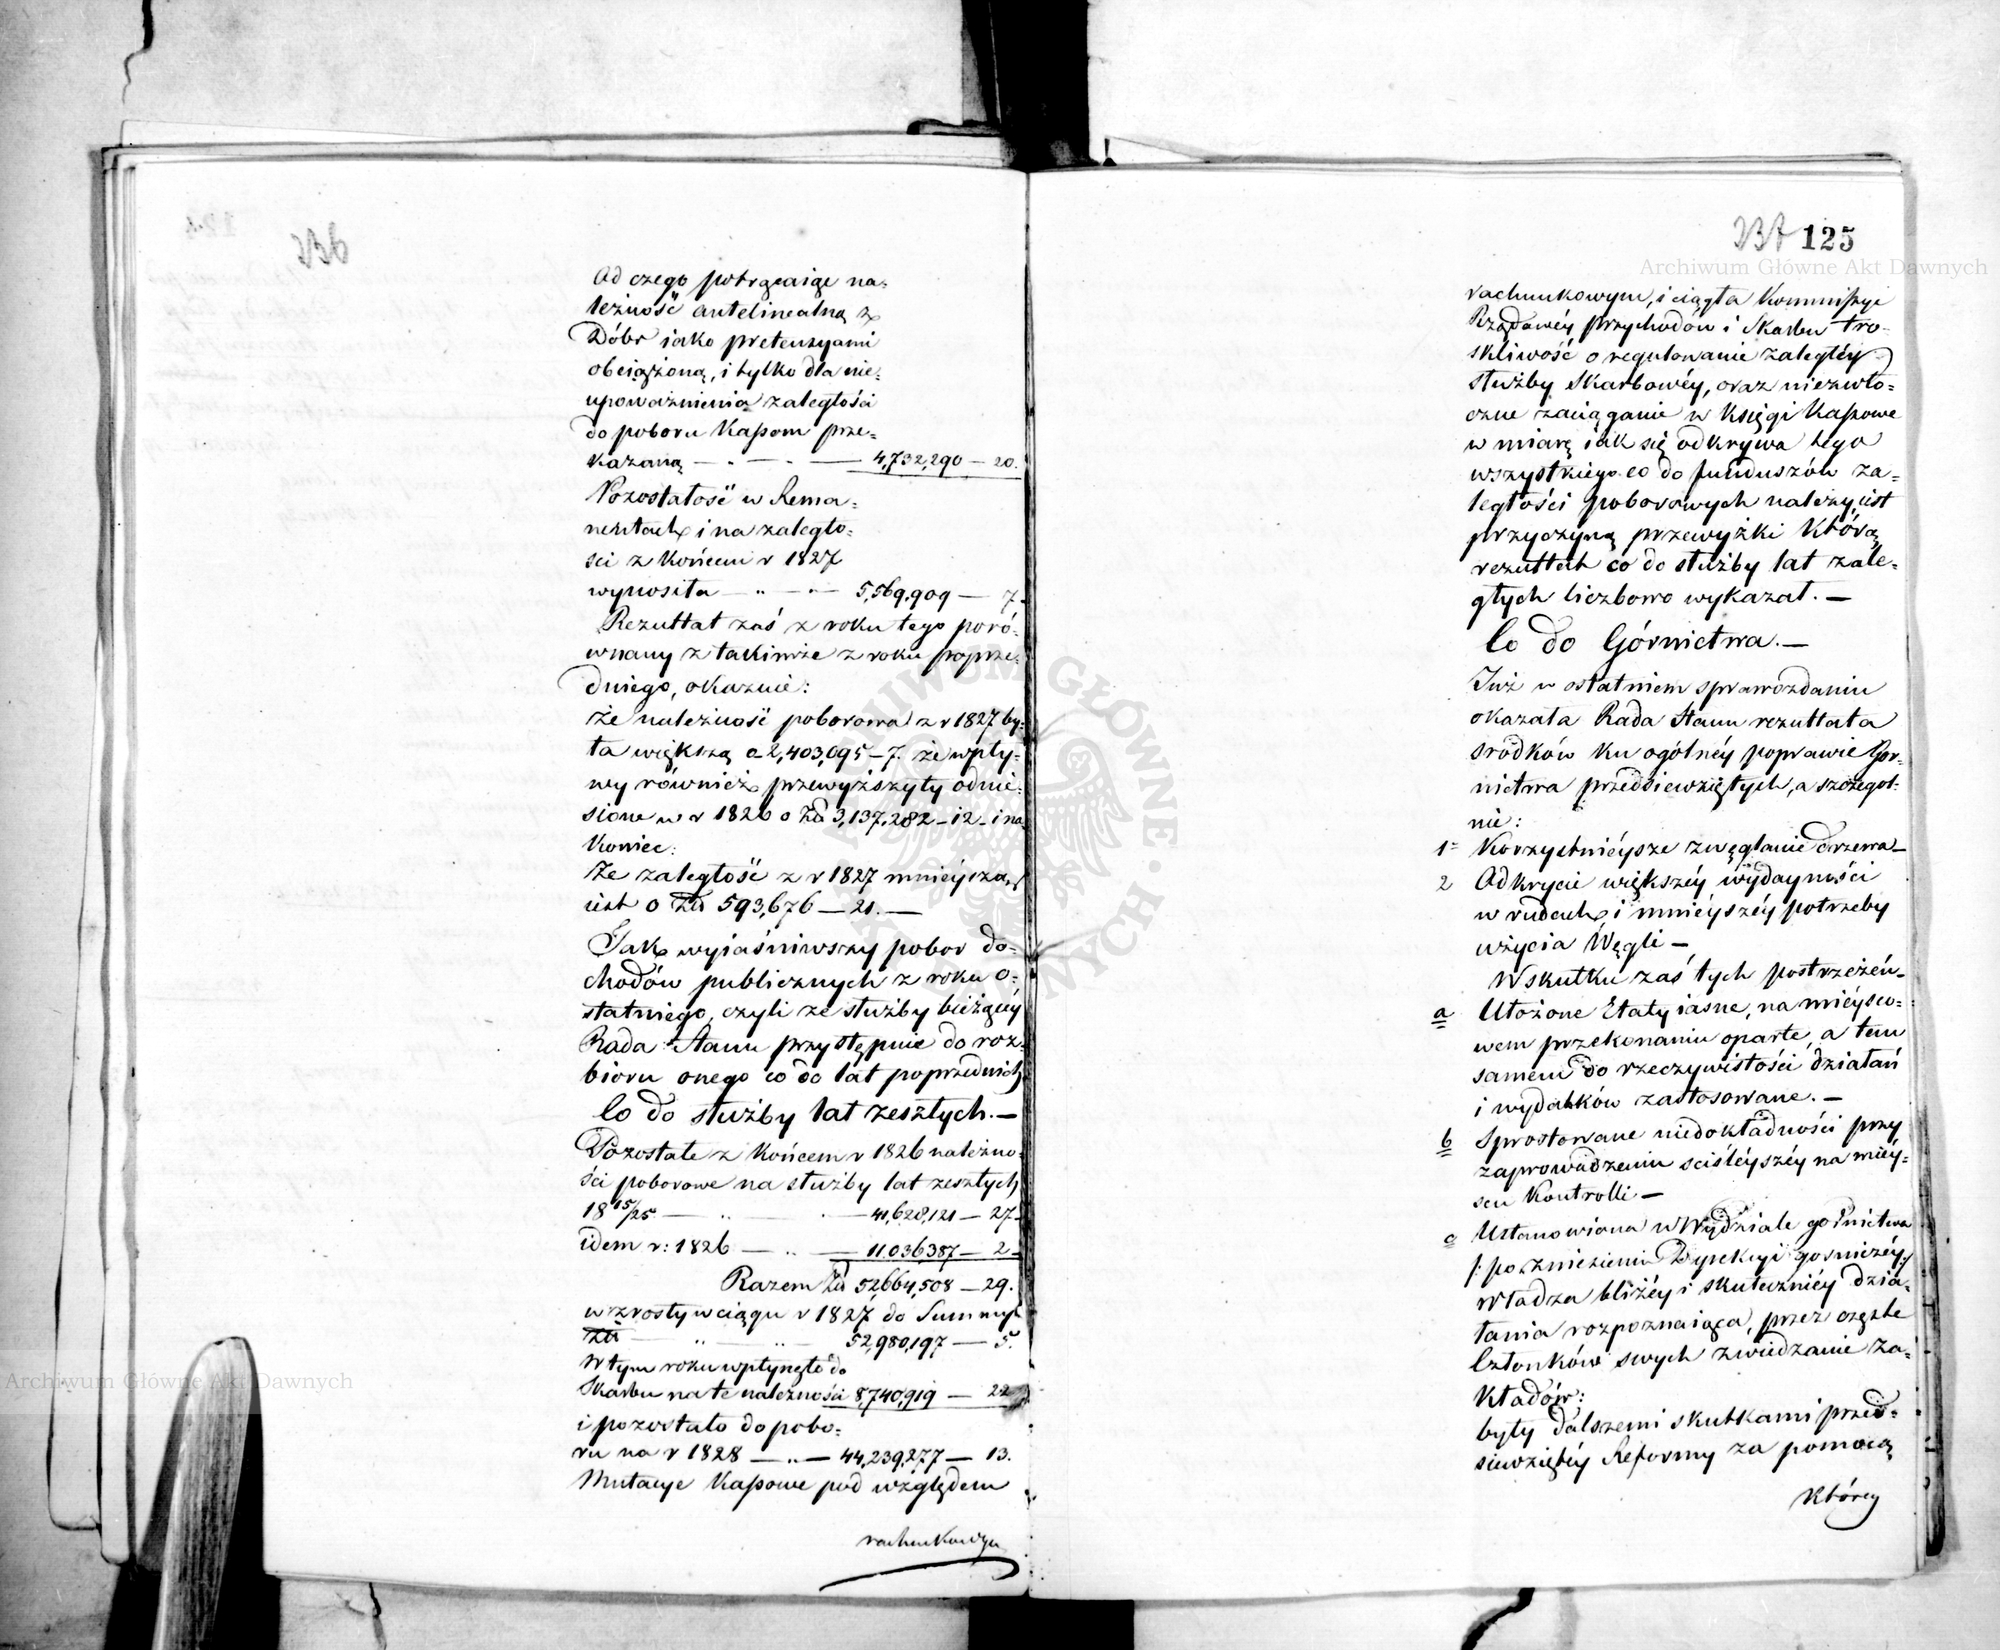 236
Od czego potrąciaiąc na-
leżność antelinealną z
Dóbr iako pretensyami
obciążoną, i tylko dla nie-
upoważnienia zaległości
do poboru Kassom prze-
kazaną — „ — „ — 4,732,290 — 20.
Pozostałość w Rema-
nentach i na zaległo-
ści z końcem r 1827
wynosiła — „ — „ — 5,569,909 — 7.
Rezultat zaś z roku tego poró-
wnany z takimże z roku poprze-
dniego, okazuie:
że należność poborowa z r 1827 by-
ła większą o 2,403,095 — 7. że wpły-
wy również przewyższyły odnie-
sione w r 1826 o Złł 3,137,282 — 12 — i na
koniec:
Że zaległość z r 1827 mnieysza
iest o Złł 593,676 — 21. —
Jak wyiaśniwszy pobor do-
chodów publicznych z roku o-
statniego, czyli ze służby bieżącéy
Rada Stanu przystępuie do roz-
bioru onego co do lat poprzednich
Co do służby lat zeszłych. —
Pozostałe z końcem r 1826 należno-
ści poborowe na służby lat zeszłych
18 15/25 — „ — 41,628,121 — 27.
idem r: 1826 — „ — 11,036,387 — 2.
Razem Złł 52,664,508 — 29.
wzrosły w ciągu r 1827, do Summy
Złł — „ — „ — 52,980,197 — 5.
W tym roku wpłynęło do
Skarbu na te należności 8,740,919 — 22
i pozostało do pobo-
ru na r 1828 — „ — 44,239,277 — 13.
Mutacye Kassowe pod względem
rachunkowym
237 125
rachunkowym, i ciągła Kommissyi
Rządowéy przychodów i Skarbu tro-
skliwość o regulowanie zaległéy
służby Skarbowéy, oraz niezwło-
czne zaciąganie w Księgi Kassowe
w miarę iak się odkrywa tego
wszystkiego co do funduszów za-
ległości poborowych należy, iest
przyczyną przewyżki którą
rezultat co do służby lat zale-
głych liczbowo wykazał. —
Co do Górnictwa. —
Już w ostatniem sprawozdaniu
okazała Rada Stanu rezultata
srodków ku ogólnéy poprawie Gór-
nictwa przedsiewziętych, a szczegól-
nie:
1= Korzystnieysze zwęglanie drzewa —
2 Odkrycie większéy wydayności
w rudach i mnieyszéy potrzeby
użycia Węgli —
Wskutku zaś tych postrzeżeń —
a Ułożone Etaty iasne, na mieysco-
wem przekonaniu oparte, a tem
samem do rzeczywistości działań
i wydatków zastosowane. —
b Sprostowane niedokładności przy
zaprowadzeniu sciśleyszéy na miey-
scu Kontrolli —
c Ustanowiona w Wydziale górnictwa
/: po zniesieniu Dyrekcyi górniczéy :/
Władza bliżéy i skuteczniéy dzia-
łania rozpoznaiąca, przez częste
Członków swych zwiedzanie Za-
kładów:
były dalszemi skutkami przed-
siewziętéy Reformy za pomocą
któréy
Archiwum Główne Akt Dawnych
Archiwum Główne Akt Dawnych
ARCHIWUM GŁÓWNE AKT DAWNYCH